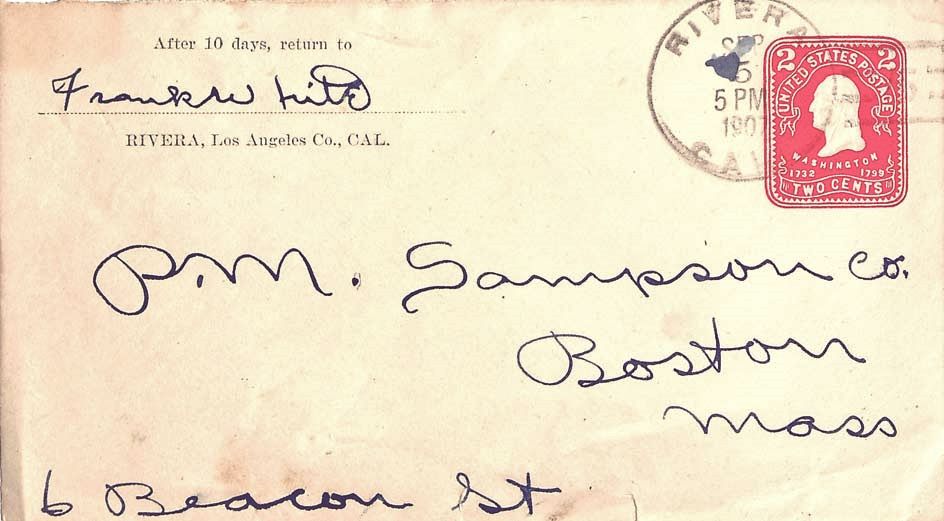 After 10 days, return to
Frank W
RIVERA, Los Angeles Co., CAL.
RIVERA
SEP
5
5 PM
1907
CAL
2 2
UNITED STATES POSTAGE
WASHINGTON
1732 1799
TWO CENTS
P.M. Sampson Co.
Boston
Mass
6 Beacon St